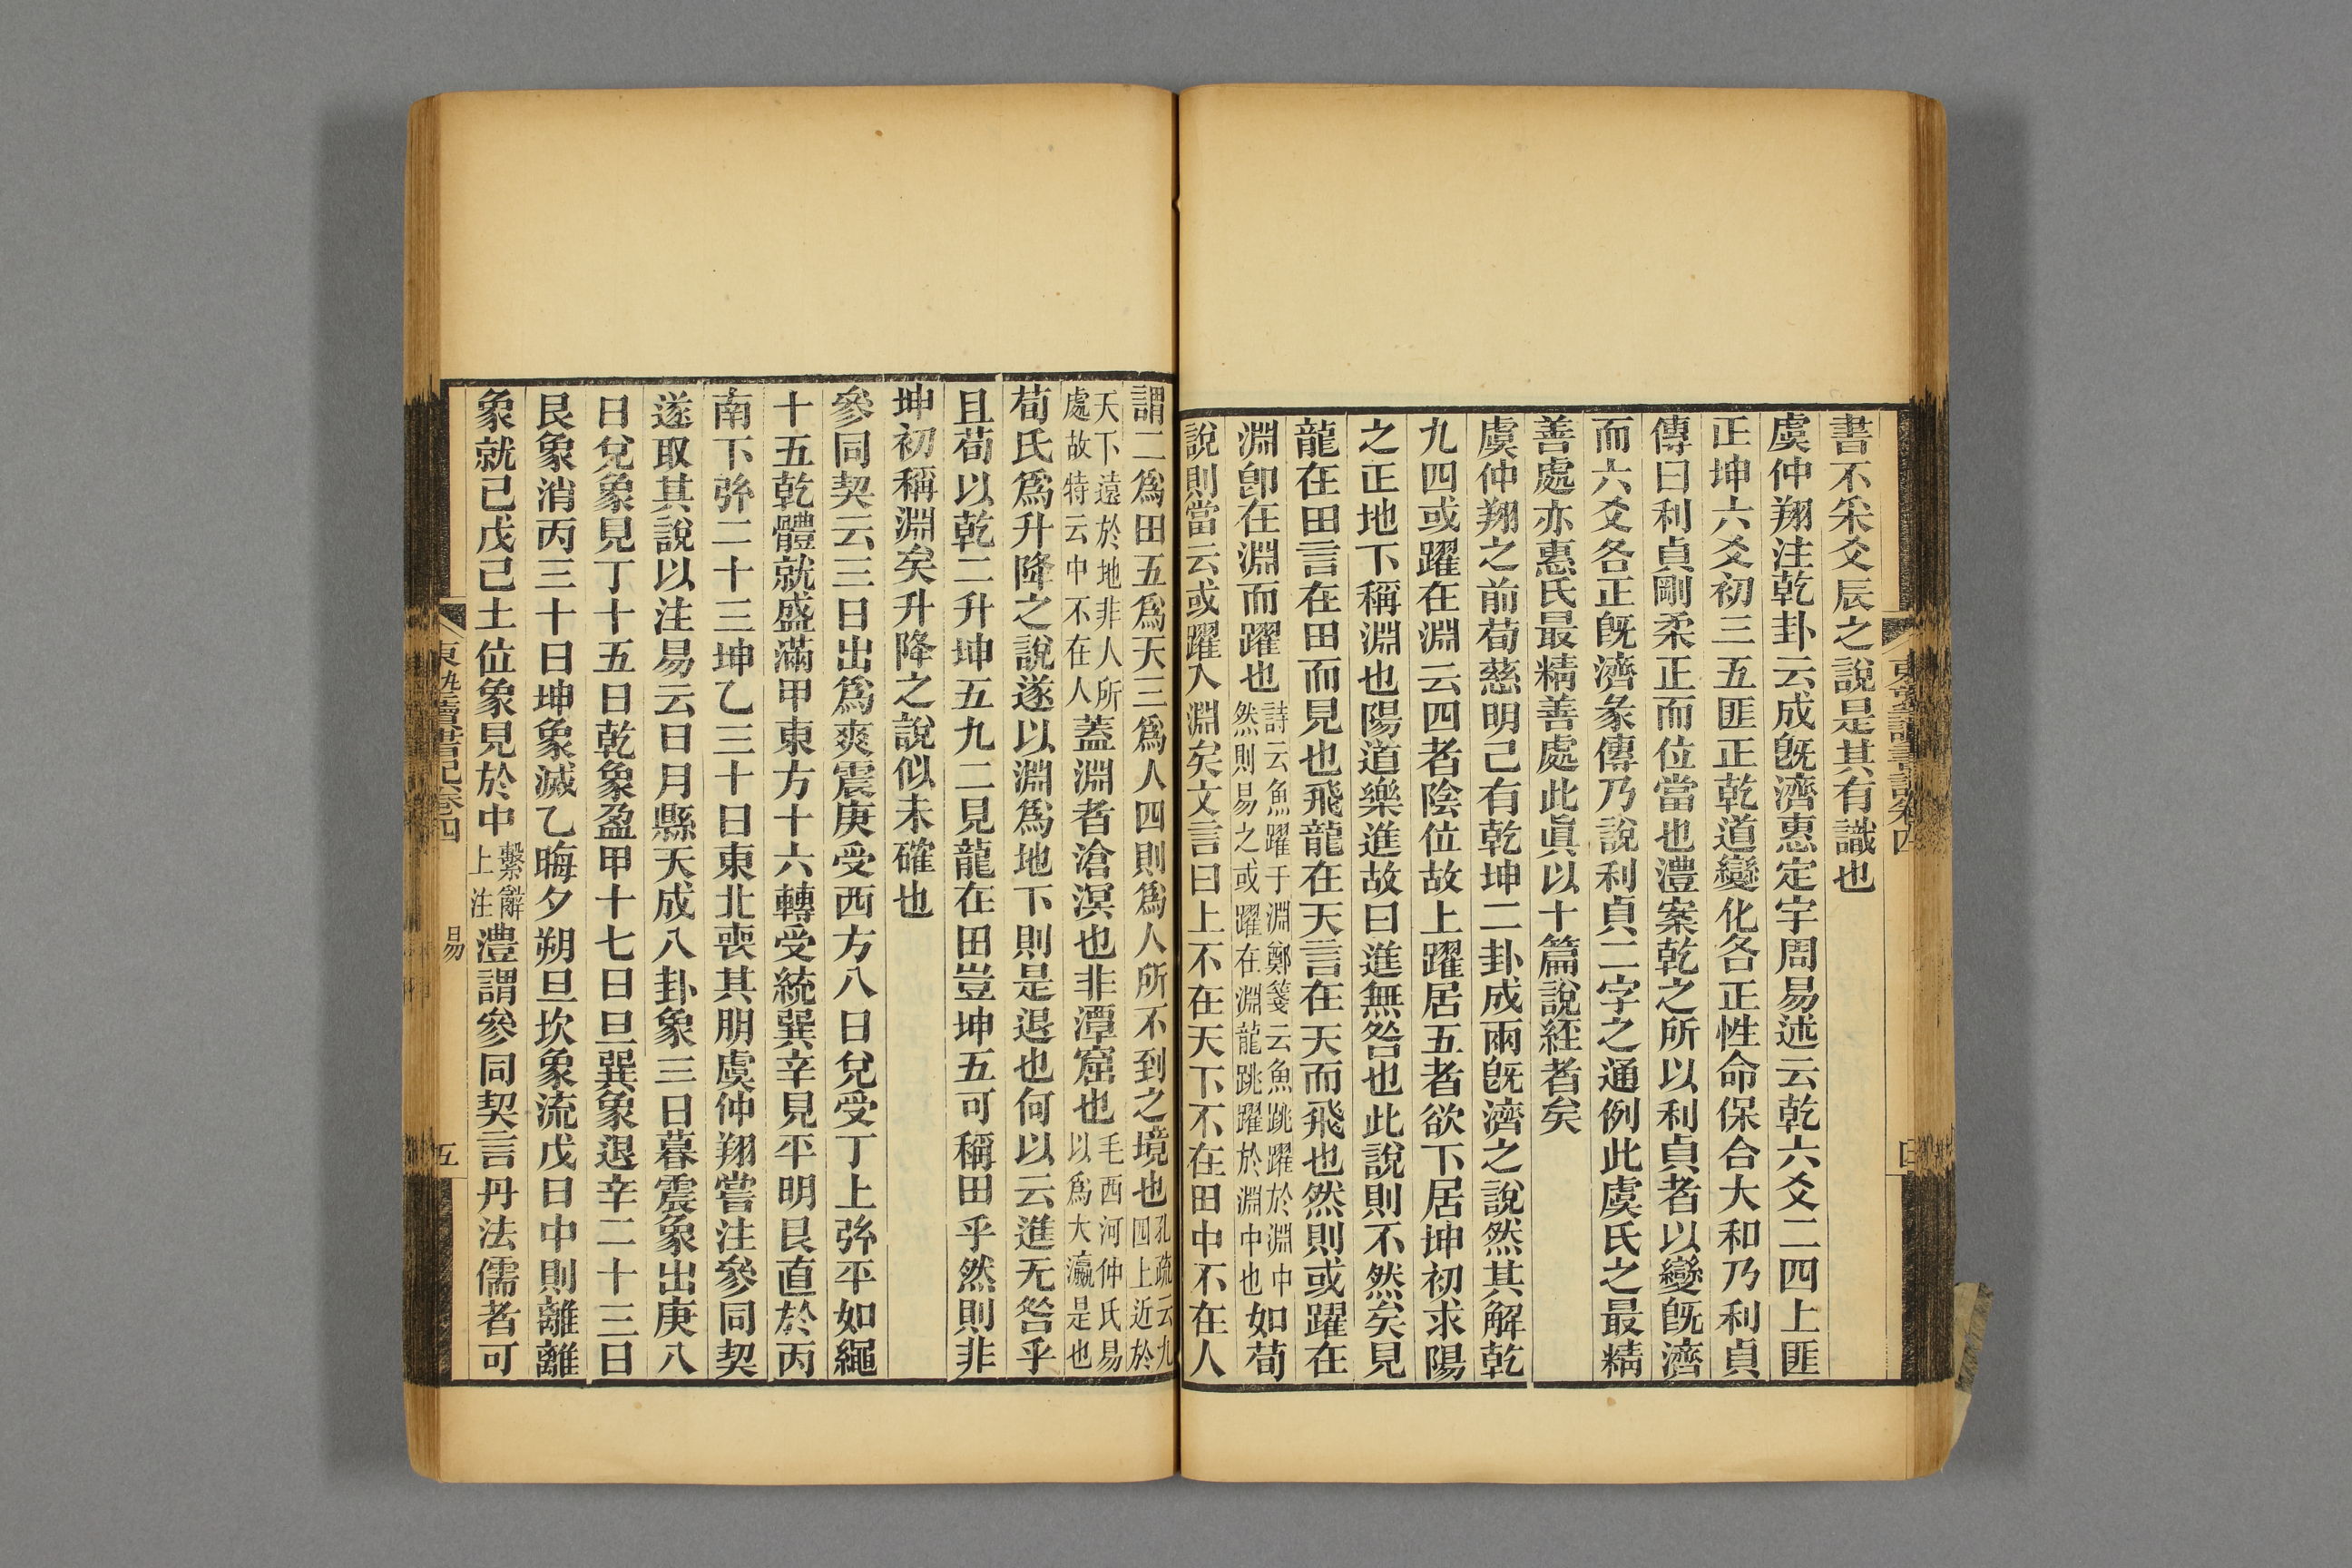 書不采爻辰之說是其有識也
虞仲翔注乾卦云成旣濟惠定宇周易述云乾六爻二四上匪
正坤六爻初三五匪正乾道變化各正性命保合大和乃利貞
傳曰利貞剛柔正而位當也澧案乾之所以利貞者以變旣濟
而六爻各正旣濟彖傳乃說利貞二字之通例此虞氏之最精
善處亦惠氏最精善處此眞以十篇說經者矣
虞仲翔之前荀慈明已有乾坤二卦成兩旣濟之說然其解乾
九四或躍在淵云四者陰位故上躍居五者欲下居坤初求陽
之正地下稱淵也陽道樂進故曰進無咎也此說則不然矣見
龍在田言在田而見也飛龍在天言在天而飛也然則或躍在
淵卽在淵而躍也詩云魚躍于淵鄭箋云魚跳躍於淵中然則易之或躍在淵龍跳躍於淵中也如荀
說則當云或躍入淵矣文言曰上不在天下不在田中不在人
東塾讀書記卷四
四
謂二爲田五爲天三爲人四則爲人所不到之境也孔疏云九四上近於
天下遠於地非人所處故特云中不在人蓋淵者滄溟也非潭窟也毛西河仲氏易以爲大瀛是也
荀氏爲升降之說遂以淵爲地下則是退也何以云進无咎乎
且荀以乾二升坤五九二見龍在田豈坤五可稱田乎然則非
坤初稱淵矣升降之說似未確也
參同契云三日出爲爽震庚受西方八日兌受丁上弦平如繩
十五乾體就盛滿甲東方十六轉受統巽辛見平明艮直於丙
南下弦二十三坤乙三十日東北喪其朋虞仲翔嘗注參同契
遂取其說以注易云日月縣天成八卦象三日暮震象出庚八
日兌象見丁十五日乾象盈甲十七日旦巽象退辛二十三日
艮象消丙三十日坤象滅乙晦夕朔旦坎象流戊日中則離離
象就己戊己土位象見於中繫辭上注澧謂參同契言丹法儒者可
東塾讀書記卷四
易
五